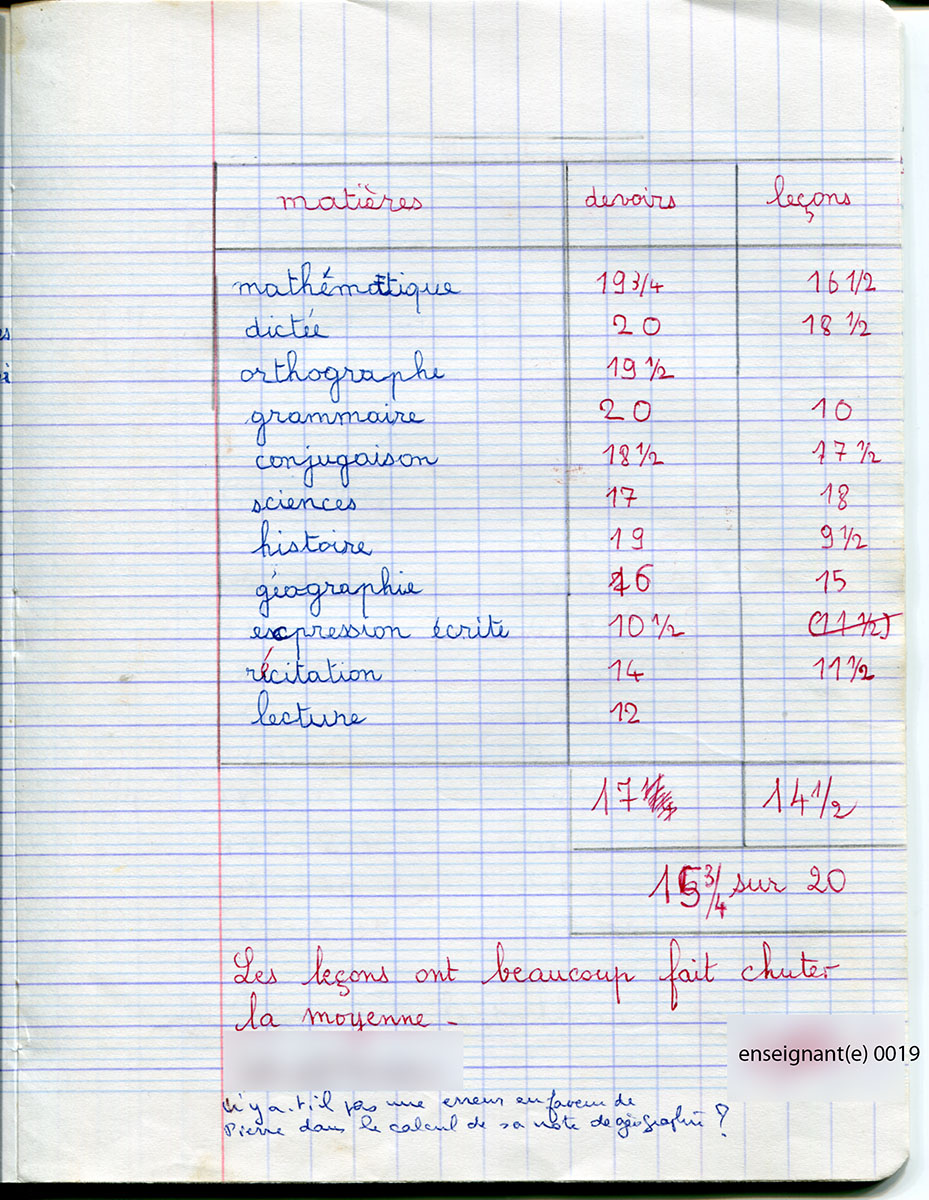 matières devoirs leçons
mathématique 19 3/4 16 1/2
dictée 20 18 1/2
orthographe 19 1/2
grammaire 20 10
conjugaison 18 1/2 17 1/2
sciences 17 18
histoire 19 9 1/2
géographie 16 15
expression écrite 10 1/2 (11 1/2)
récitation 14 11 1/2
lecture 12
17 14 1/2
15 3/4 sur 20
Les leçons ont beaucoup fait chuter
la moyenne -
enseignant(e) 0019
n'y a-t-il pas une erreur en faveur de
Pierre dans le calcul de sa note de géographie ?